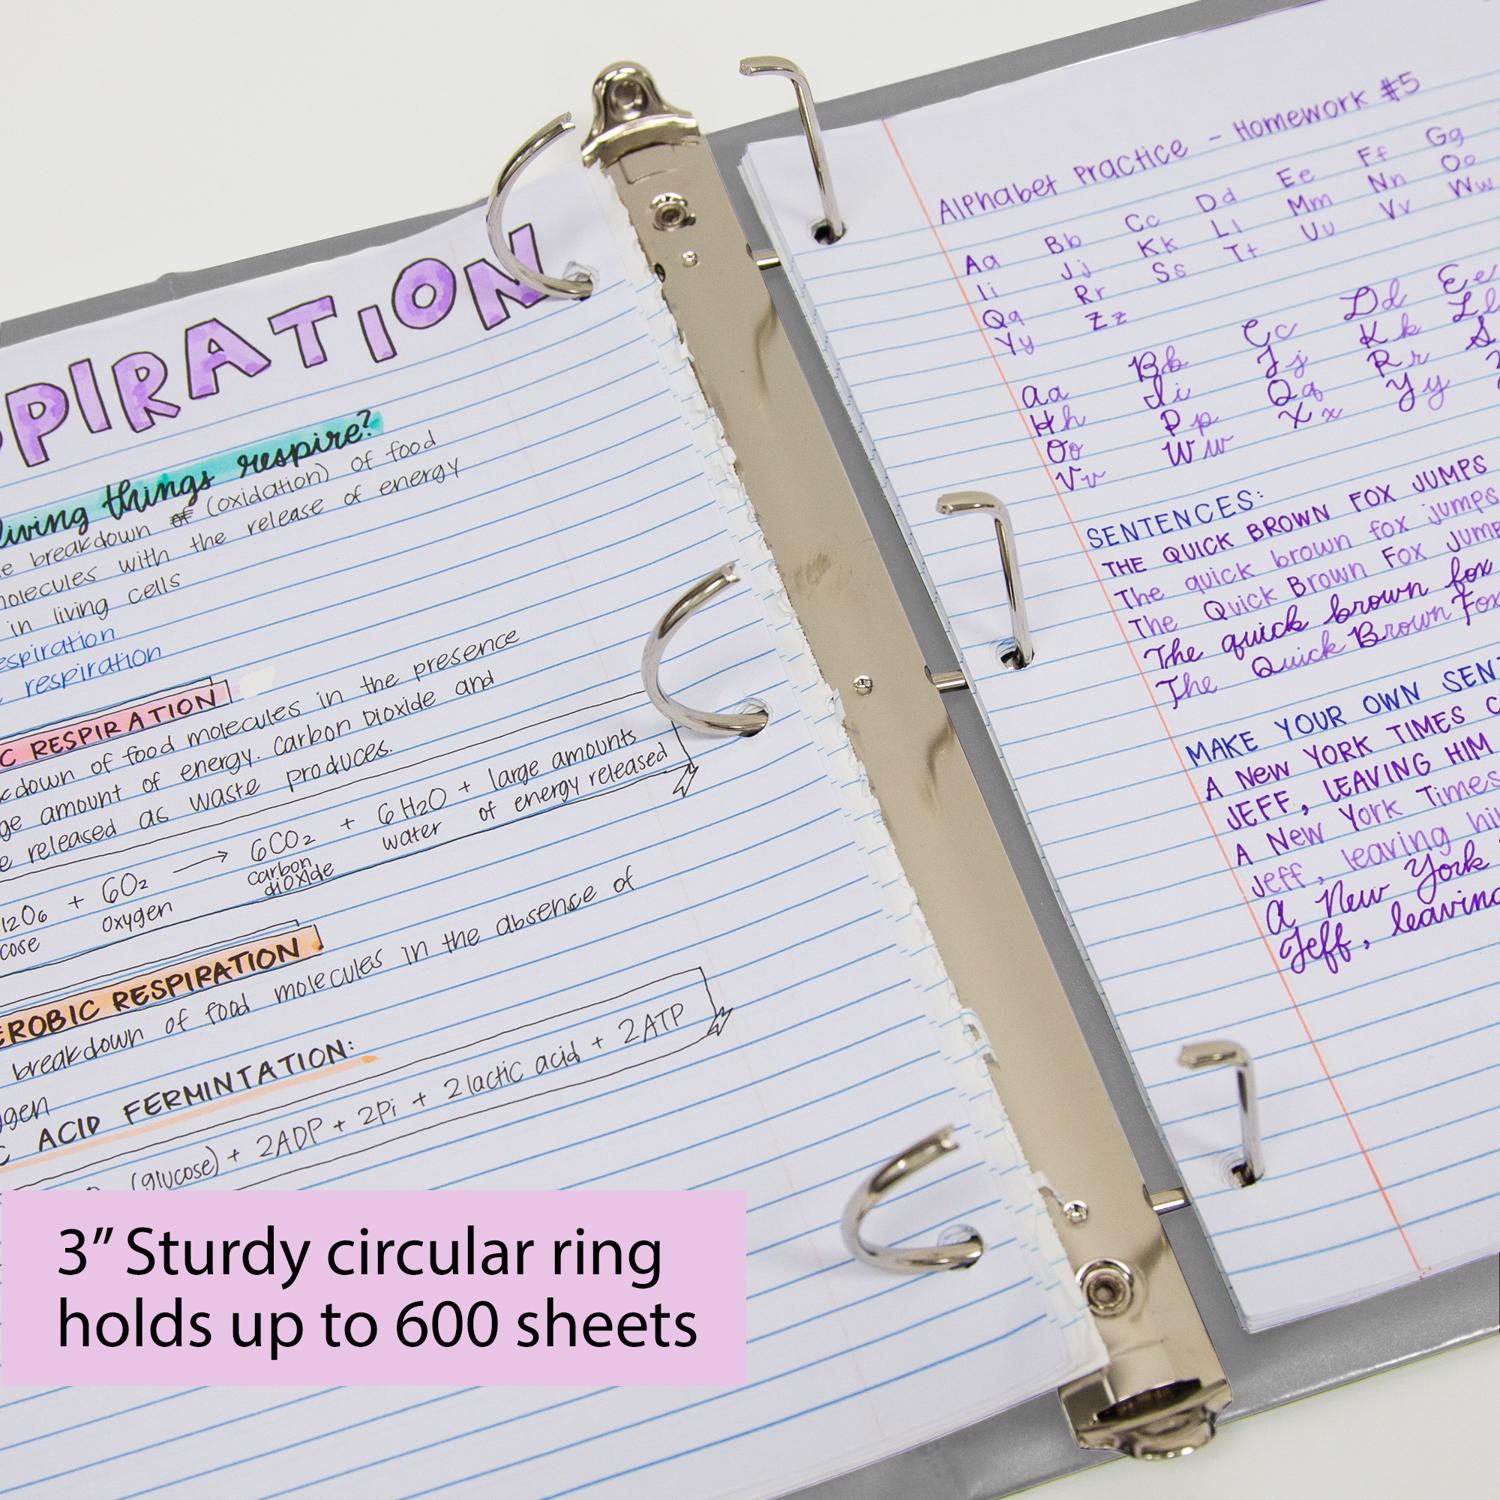 PIRATION
living things respire?
breakdown of (oxidation) of food
molecules with the release of energy
in living cells
respiration
respiration
C RESPIRATION
kdown of food molecules in the presence
ge amount of energy. Carbon Dioxide and
e released as waste produces.
12O6 + 6O2 → 6CO2 + 6H2O + large amounts
cose oxygen carbon dioxide water of energy released
EROBIC RESPIRATION
breakdown of food molecules in the absence of
ygen
C ACID FERMINTATION:
(glucose) + 2ADP + 2Pi + 2 lactic acid + 2ATP
3” Sturdy circular ring
holds up to 600 sheets
Alphabet Practice - Homework #5
Aa Bb Cc Dd Ee Ff Gg
Ii Jj Kk Ll Mm Nn Oo
Qq Rr Ss Tt Uu Vv Ww
Yy Zz
Aa Bb Cc Dd Ee
Hh Ii Jj Kk Ll
Oo Pp Qq Rr S
Vv Ww Xx Yy
SENTENCES:
THE QUICK BROWN FOX JUMPS
The quick brown fox jumps
The Quick Brown Fox Jump
The quick brown fox
The Quick Brown Fox
MAKE YOUR OWN SEN
A NEW YORK TIMES C
JEFF, LEAVING HIM
A New York Times
Jeff, leaving hi
A New York
Jeff, leaving